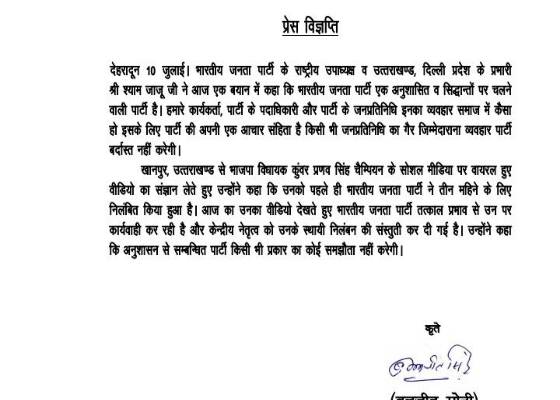 प्रेस विज्ञप्ति
देहरादून 10 जुलाई। भारतीय जनता पार्टी के राष्ट्रीय उपाध्यक्ष व उत्तराखण्ड, दिल्ली प्रदेश के प्रभारी
श्री श्याम जाजू जी ने आज एक बयान में कहा कि भारतीय जनता पार्टी एक अनुशासित व सिद्धान्तों पर चलने
वाली पार्टी है। हमारे कार्यकर्ता, पार्टी के पदाधिकारी और पार्टी के जनप्रतिनिधि इनका व्यवहार समाज में कैसा
हो इसके लिए पार्टी की अपनी एक आचार संहिता है किसी भी जनप्रतिनिधि का गैर जिम्मेदाराना व्यवहार पार्टी
बर्दास्त नहीं करेगी।
खानपुर, उत्तराखण्ड से भाजपा विधायक कुंवर प्रणव सिंह चैम्पियन के सोशल मीडिया पर वायरल हुए
वीडियो का संज्ञान लेते हुए उन्होंने कहा कि उनको पहले ही भारतीय जनता पार्टी ने तीन महिने के लिए
निलंबित किया हुआ है। आज का उनका वीडियो देखते हुए भारतीय जनता पार्टी तत्काल प्रभाव से उन पर
कार्यवाही कर रही है और केन्द्रीय नेतृत्व को उनके स्थायी निलंबन की संस्तुती कर दी गई है। उन्होंने कहा
कि अनुशासन से सम्बन्धित पार्टी किसी भी प्रकार का कोई समझौता नहीं करेगी।
कृते